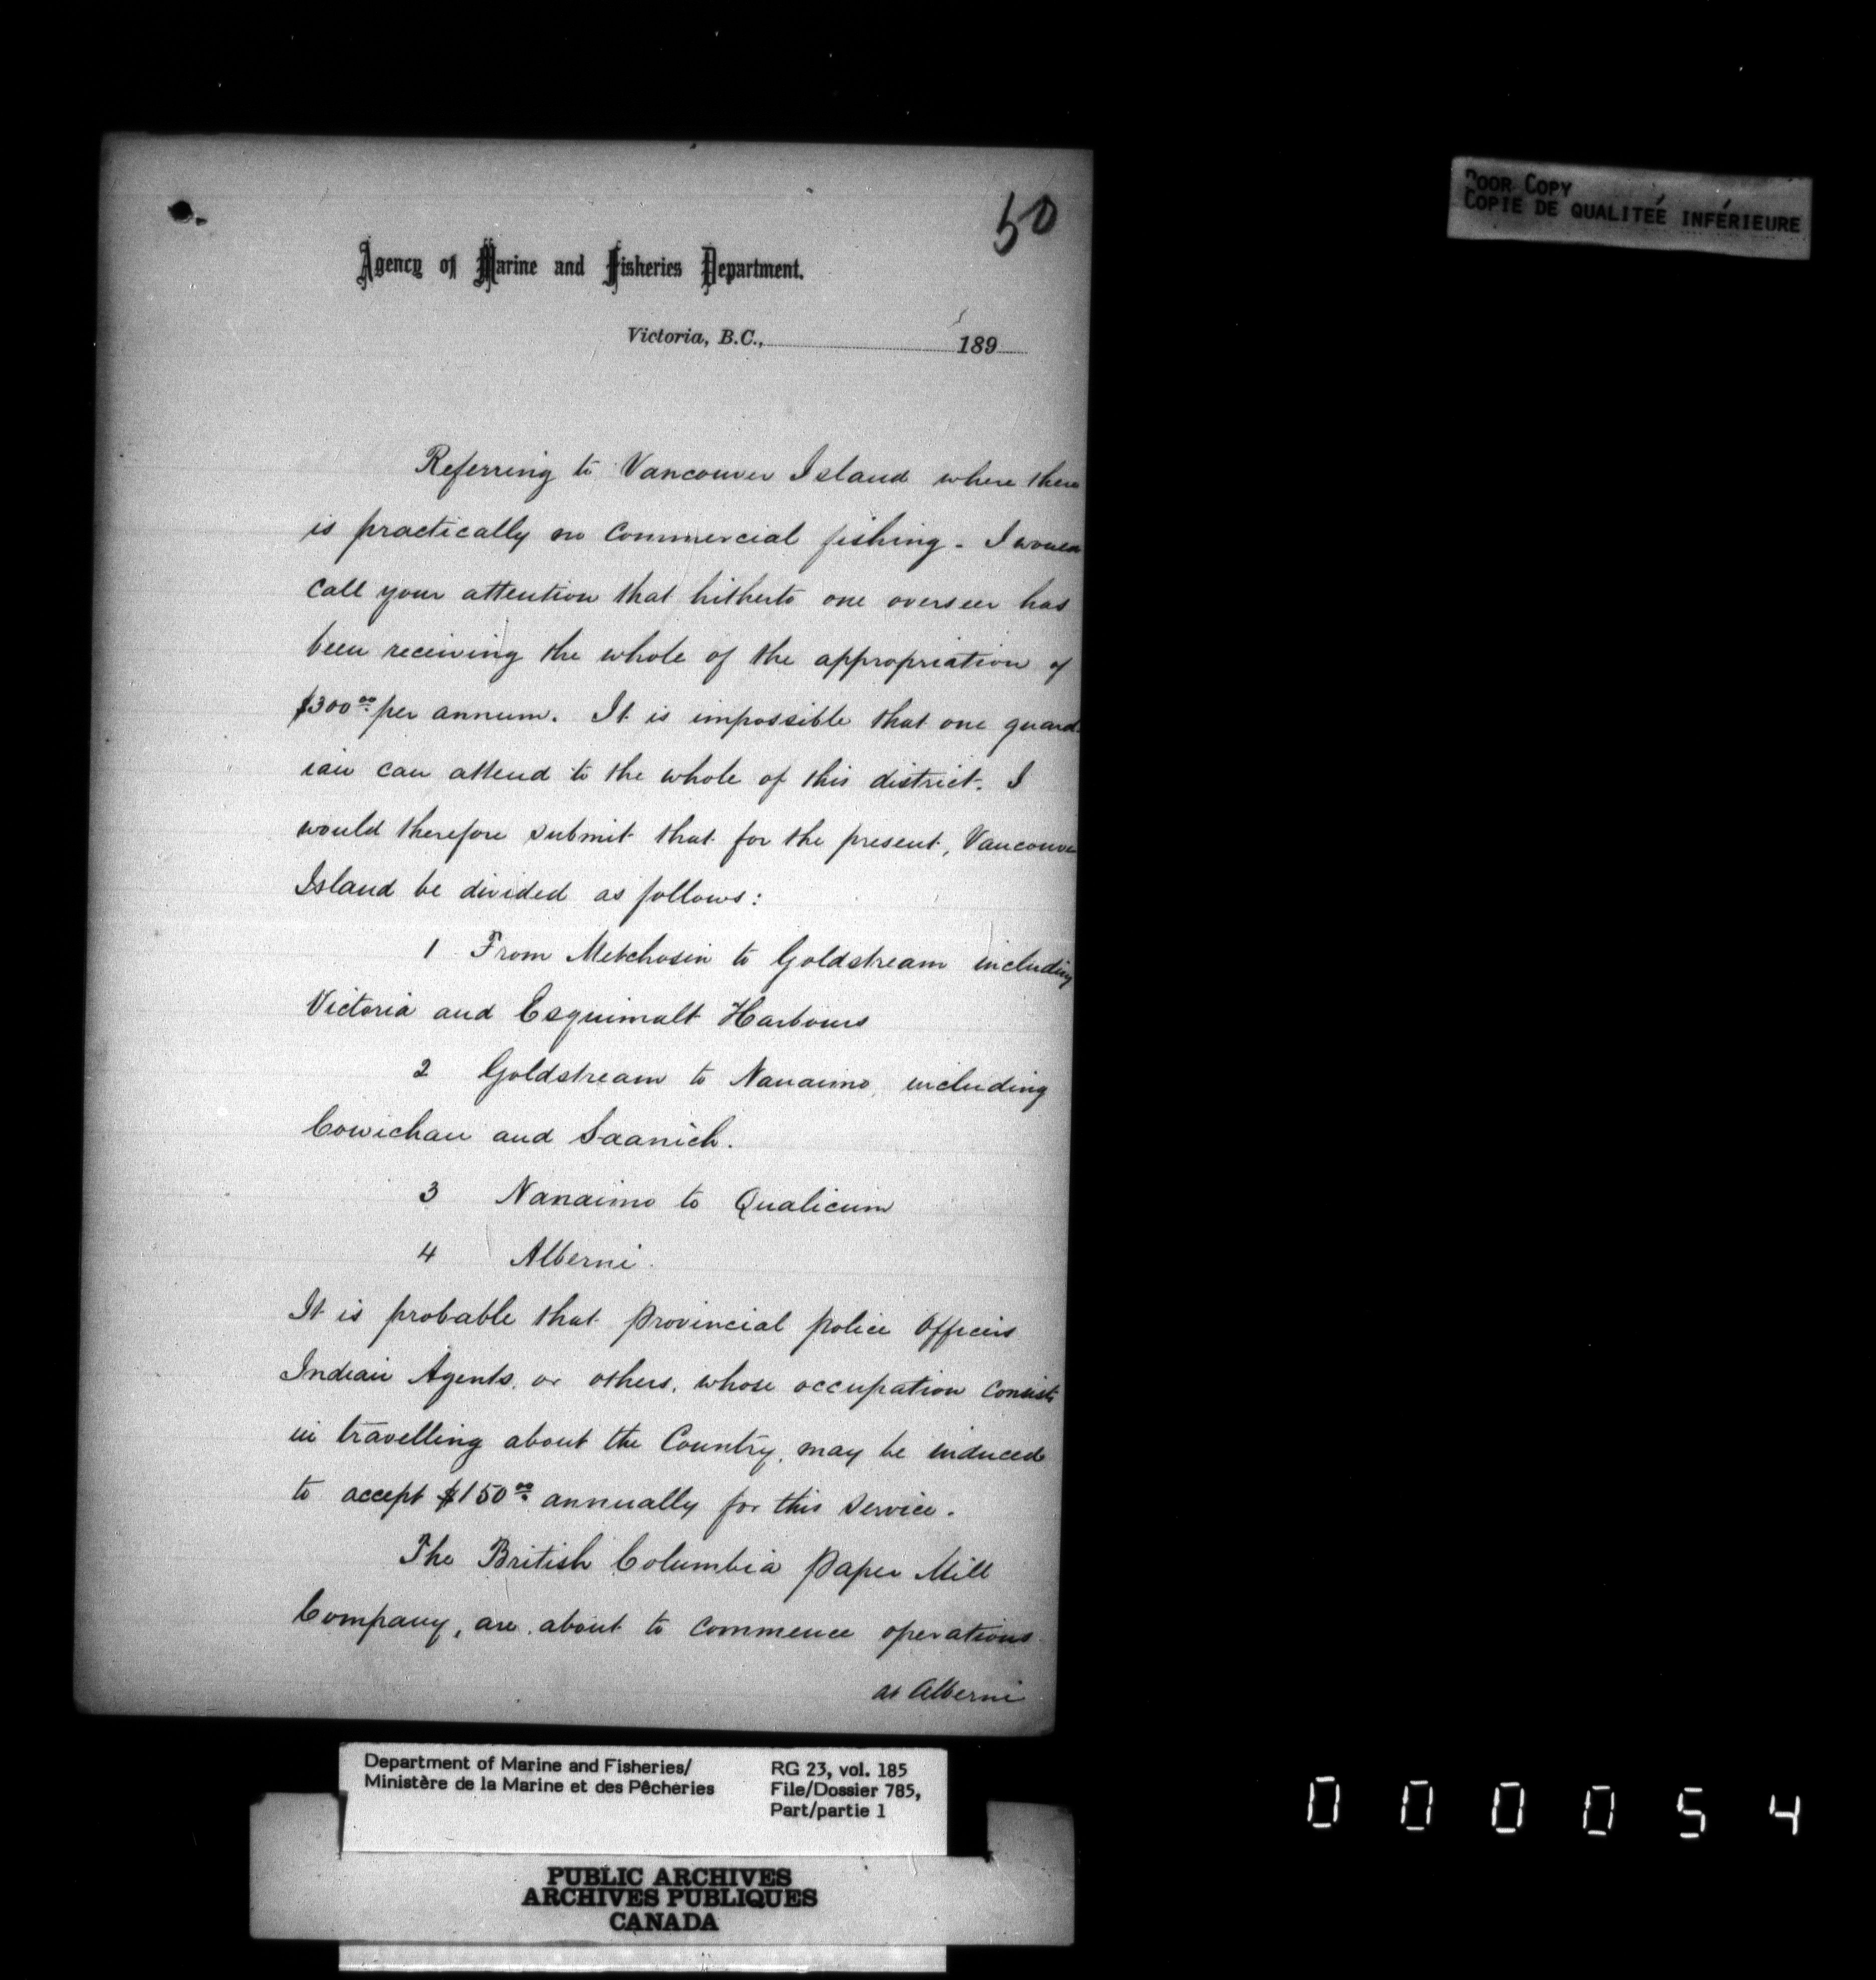 50
Agency of Marine and Fisheries Department.
Victoria, B.C., 189
Referring to Vancouver Island where there
is practically no commercial fishing - I would
call your attention that hitherto one overseer has
been receiving the whole of the appropriation of
$300.00 per annum. It is impossible that one guard-
ian can attend to the whole of this district. I
would therefore submit that for the present, Vancouve
Island be divided as follows:
1 From Metchosin to Goldstream including
Victoria and Esquimalt Harbours
2 Goldstream to Nanaimo, including
Cowichan and Saanich.
3 Nanaimo to Qualicum
4 Alberni.
It is probable that provincial police Officers
Indian Agents, or others, whose occupation consists
in travelling about the Country, may be induced
to accept $150.00 annually for this service.
The British Columbia Paper Mill
Company, are about to commence operations
at Alberni
POOR COPY
COPIE DE QUALITEÉ INFÉRIEURE
Department of Marine and Fisheries/
Ministère de la Marine et des Pêcheries
RG 23, vol. 185
File/Dossier 785,
Part/partie 1
PUBLIC ARCHIVES
ARCHIVES PUBLIQUES
CANADA
000054